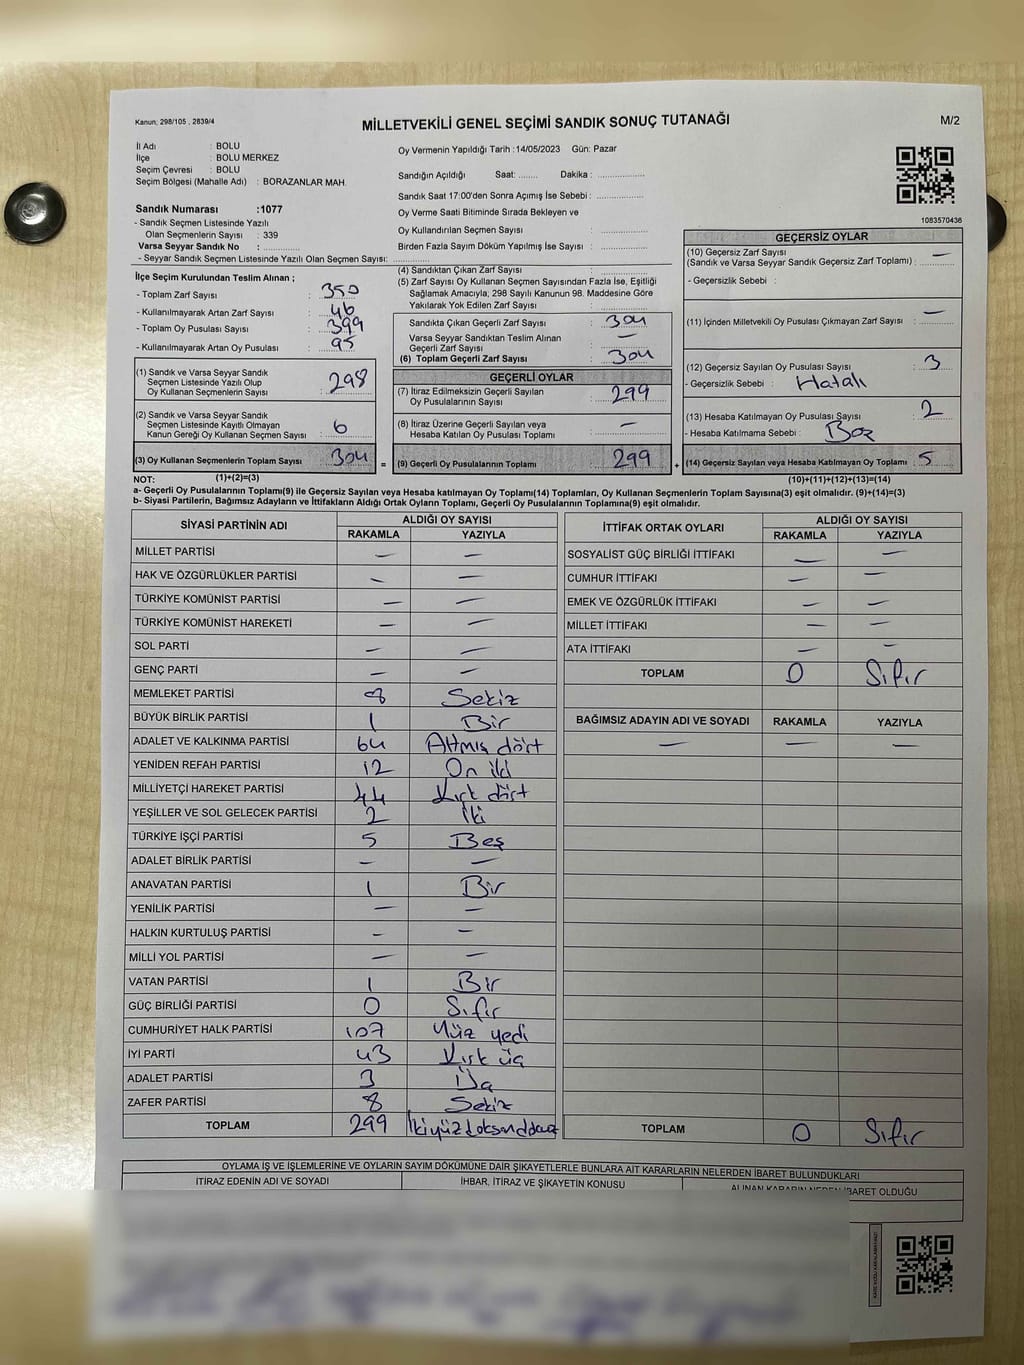 Kanun; 298/105 , 2839/4
MİLLETVEKİLİ GENEL SEÇİMİ SANDIK SONUÇ TUTANAĞI
M/2
İl Adı : BOLU
İlçe : BOLU MERKEZ
Seçim Çevresi : BOLU
Seçim Bölgesi (Mahalle Adı) : BORAZANLAR MAH.
Sandık Numarası :1077
- Sandık Seçmen Listesinde Yazılı
Olan Seçmenlerin Sayısı : 339
Varsa Seyyar Sandık No :
- Seyyar Sandık Seçmen Listesinde Yazılı Olan Seçmen Sayısı:
Oy Vermenin Yapıldığı Tarih :14/05/2023 Gün: Pazar
Sandığın Açıldığı Saat: Dakika :
Sandık Saat 17:00'den Sonra Açımış İse Sebebi :
Oy Verme Saati Bitiminde Sırada Bekleyen ve
Oy Kullandırılan Seçmen Sayısı :
Birden Fazla Sayım Döküm Yapılmış İse Sayısı :
1083570436
İlçe Seçim Kurulundan Teslim Alınan ;
- Toplam Zarf Sayısı : 350
- Kullanılmayarak Artan Zarf Sayısı : 46
- Toplam Oy Pusulası Sayısı : 399
- Kullanılmayarak Artan Oy Pusulası : 95
(1) Sandık ve Varsa Seyyar Sandık
Seçmen Listesinde Yazılı Olup
Oy Kullanan Seçmenlerin Sayısı : 298
(2) Sandık ve Varsa Seyyar Sandık
Seçmen Listesinde Kayıtlı Olmayan
Kanun Gereği Oy Kullanan Seçmen Sayısı : 6
(3) Oy Kullanan Seçmenlerin Toplam Sayısı : 304
(4) Sandıktan Çıkan Zarf Sayısı :
(5) Zarf Sayısı Oy Kullanan Seçmen Sayısından Fazla İse, Eşitliği
Sağlamak Amacıyla, 298 Sayılı Kanunun 98. Maddesine Göre
Yakılarak Yok Edilen Zarf Sayısı :
Sandıkta Çıkan Geçerli Zarf Sayısı : 304
Varsa Seyyar Sandıktan Teslim Alınan
Geçerli Zarf Sayısı : —
(6) Toplam Geçerli Zarf Sayısı : 304
GEÇERLİ OYLAR
(7) İtiraz Edilmeksizin Geçerli Sayılan
Oy Pusulalarının Sayısı : 299
(8) İtiraz Üzerine Geçerli Sayılan veya
Hesaba Katılan Oy Pusulası Toplamı : —
= (9) Geçerli Oy Pusulalarının Toplamı : 299
GEÇERSİZ OYLAR
(10) Geçersiz Zarf Sayısı
(Sandık ve Varsa Seyyar Sandık Geçersiz Zarf Toplamı) : —
- Geçersizlik Sebebi :
(11) İçinden Milletvekili Oy Pusulası Çıkmayan Zarf Sayısı : —
(12) Geçersiz Sayılan Oy Pusulası Sayısı : 3
- Geçersizlik Sebebi : Hatalı
(13) Hesaba Katılmayan Oy Pusulası Sayısı : 2
- Hesaba Katılmama Sebebi : Boz
+ (14) Geçersiz Sayılan veya Hesaba Katılmayan Oy Toplamı : 5
NOT: (1)+(2)=(3) (10)+(11)+(12)+(13)=(14)
a- Geçerli Oy Pusulalarının Toplamı(9) ile Geçersiz Sayılan veya Hesaba katılmayan Oy Toplamı(14) Toplamları, Oy Kullanan Seçmenlerin Toplam Sayısına(3) eşit olmalıdır. (9)+(14)=(3)
b- Siyasi Partilerin, Bağımsız Adayların ve İttifakların Aldığı Ortak Oyların Toplamı, Geçerli Oy Pusulalarının Toplamına(9) eşit olmalıdır.
SİYASİ PARTİNİN ADI ALDIĞI OY SAYISI
RAKAMLA YAZIYLA
MİLLET PARTİSİ — —
HAK VE ÖZGÜRLÜKLER PARTİSİ — —
TÜRKİYE KOMÜNİST PARTİSİ — —
TÜRKİYE KOMÜNİST HAREKETİ — —
SOL PARTİ — —
GENÇ PARTİ — —
MEMLEKET PARTİSİ 8 Sekiz
BÜYÜK BİRLİK PARTİSİ 1 Bir
ADALET VE KALKINMA PARTİSİ 64 Altmış dört
YENİDEN REFAH PARTİSİ 12 On iki
MİLLİYETÇİ HAREKET PARTİSİ 44 Kırk dört
YEŞİLLER VE SOL GELECEK PARTİSİ 2 İki
TÜRKİYE İŞÇİ PARTİSİ 5 Beş
ADALET BİRLİK PARTİSİ — —
ANAVATAN PARTİSİ 1 Bir
YENİLİK PARTİSİ — —
HALKIN KURTULUŞ PARTİSİ — —
MİLLİ YOL PARTİSİ — —
VATAN PARTİSİ 1 Bir
GÜÇ BİRLİĞİ PARTİSİ 0 Sıfır
CUMHURİYET HALK PARTİSİ 107 Yüz yedi
İYİ PARTİ 43 Kırk üç
ADALET PARTİSİ 3 Üç
ZAFER PARTİSİ 8 Sekiz
TOPLAM 299 İkiyüzdoksandokuz
İTTİFAK ORTAK OYLARI ALDIĞI OY SAYISI
RAKAMLA YAZIYLA
SOSYALİST GÜÇ BİRLİĞİ İTTİFAKI — —
CUMHUR İTTİFAKI — —
EMEK VE ÖZGÜRLÜK İTTİFAKI — —
MİLLET İTTİFAKI — —
ATA İTTİFAKI — —
TOPLAM 0 Sıfır
BAĞIMSIZ ADAYIN ADI VE SOYADI RAKAMLA YAZIYLA
— — —
TOPLAM 0 Sıfır
OYLAMA İŞ VE İŞLEMLERİNE VE OYLARIN SAYIM DÖKÜMÜNE DAİR ŞİKAYETLERLE BUNLARA AİT KARARLARIN NELERDEN İBARET BULUNDUKLARI
İTİRAZ EDENİN ADI VE SOYADI İHBAR, İTİRAZ VE ŞİKAYETİN KONUSU ALINAN KARARIN NEDEN İBARET OLDUĞU